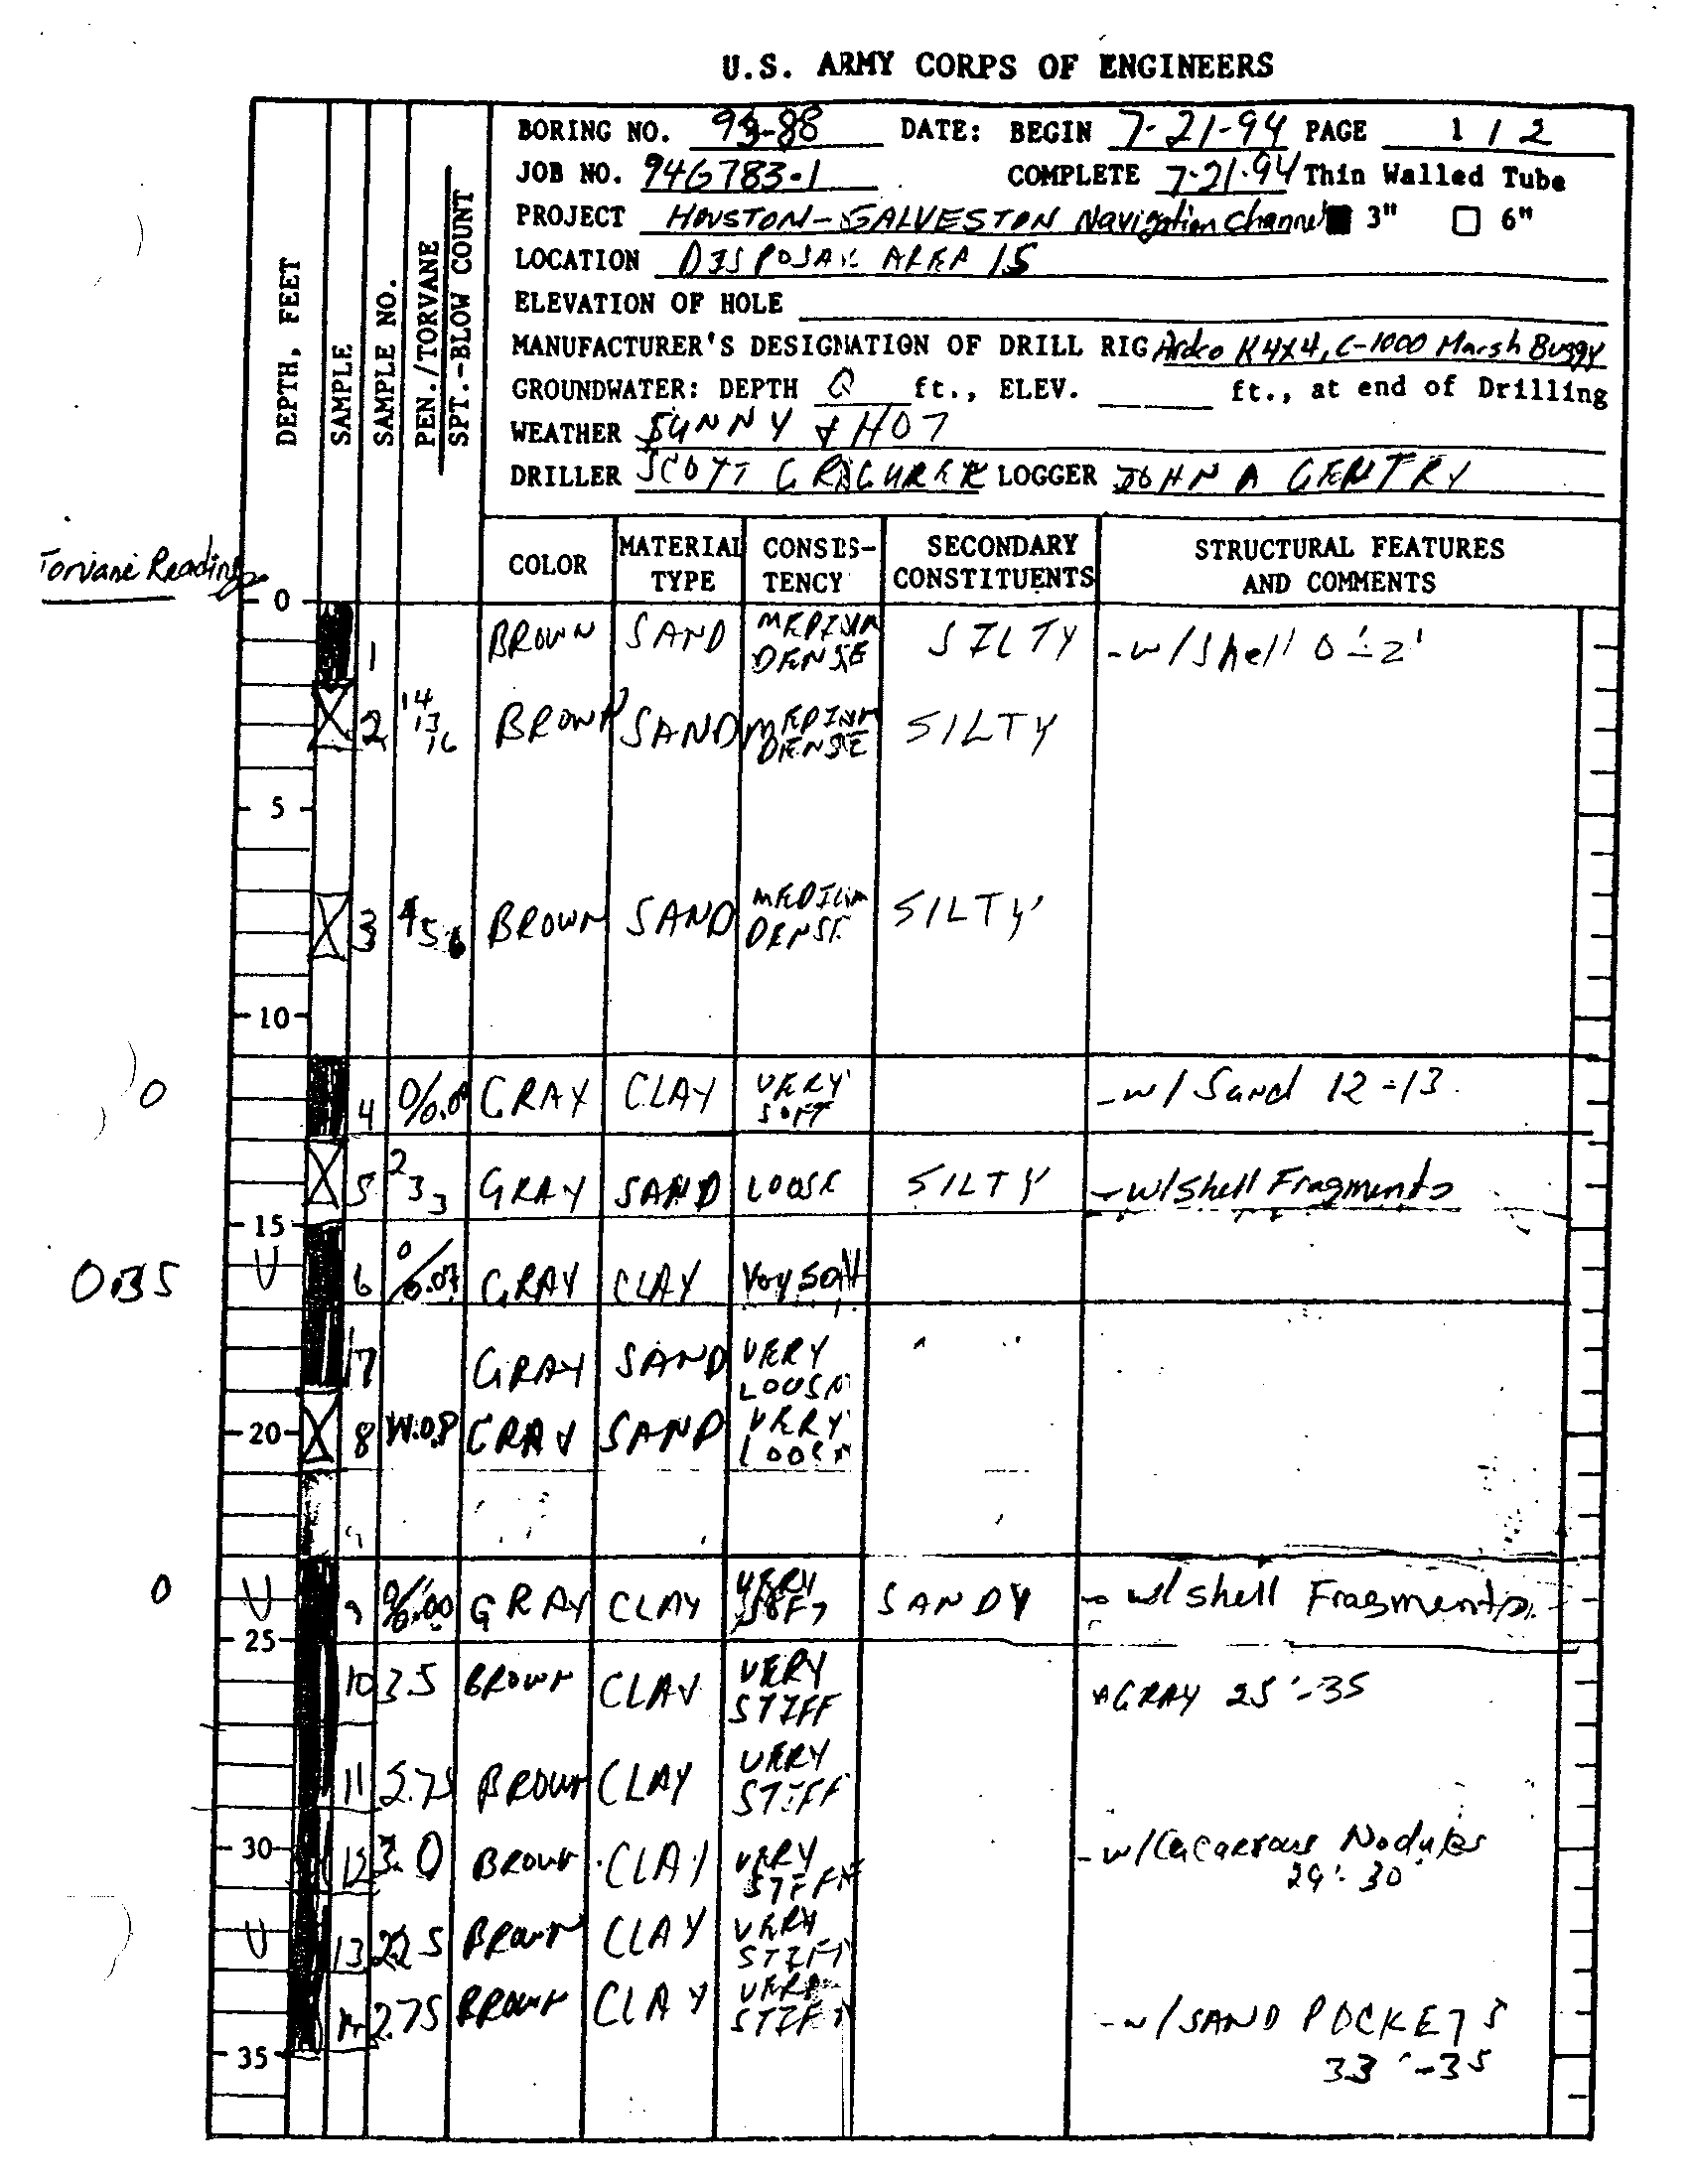 U.S. ARMY CORPS OF ENGINEERS
BORING NO. 93-88 DATE: BEGIN 7-21-94 PAGE 1 / 2
JOB NO. 94G783-1 COMPLETE 7-21-94 Thin Walled Tube
PROJECT HOUSTON-GALVESTON Navigation Channel ■ 3" □ 6"
LOCATION DISPOSAL AREA 15
ELEVATION OF HOLE
MANUFACTURER'S DESIGNATION OF DRILL RIG Ardco K 4X4, C-1000 Marsh Buggy
GROUNDWATER: DEPTH 0 ft., ELEV. ft., at end of Drilling
WEATHER SUNNY & HOT
DRILLER SCOTT LOGGER JOHN A GENTRY
DEPTH, FEET
SAMPLE
SAMPLE NO.
PEN./TORVANE
SPT.-BLOW COUNT
COLOR MATERIAL TYPE CONSIS-TENCY SECONDARY CONSTITUENTS STRUCTURAL FEATURES AND COMMENTS
Torvane Readings
0
1 BROWN SAND MEDIUM DENSE SILTY -w/ Shell 0'-2'
2 14 13 16 BROWN SAND MEDIUM DENSE SILTY
5
3 4 5 6 BROWN SAND MEDIUM DENSE SILTY
10
0 4 GRAY CLAY VERY SOFT -w/ Sand 12-13
5 2 3 3 GRAY SAND LOOSE SILTY -w/ Shell Fragments
15
0.35 U 6 0/0.07 GRAY CLAY Very Soft
7 GRAY SAND VERY LOOSE
20 8 GRAY SAND VERY LOOSE
0 U 9 0/0.00 GRAY CLAY VERY SOFT SANDY - w/ shell Fragments
25
10 3.5 BROWN CLAY VERY STIFF GRAY 25'-35
11 BROWN CLAY VERY STIFF
30 12 3.0 BROWN CLAY VERY STIFF -w/ Cacareous Nodules
29'-30'
U 13 BROWN CLAY VERY STIFF
14 2.75 BROWN CLAY VERY STIFF -w/ SAND POCKETS
35 33'-35